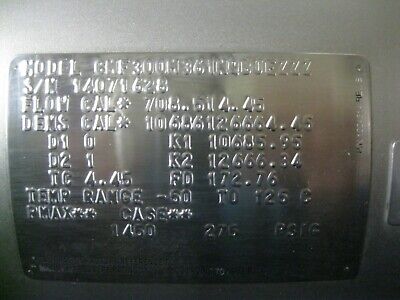 MODEL CMF300M361NQBUEZZZ
S/N 14071628
FLOW CAL* 708.514.45
DENS CAL* 10686126664.45
D1 0 K1 10685.95
D2 1 K2 12666.34
TC 4.45 FD 172.76
TEMP RANGE -50 TO 125 C
PMAX** CASE**
1450 275 PSIG